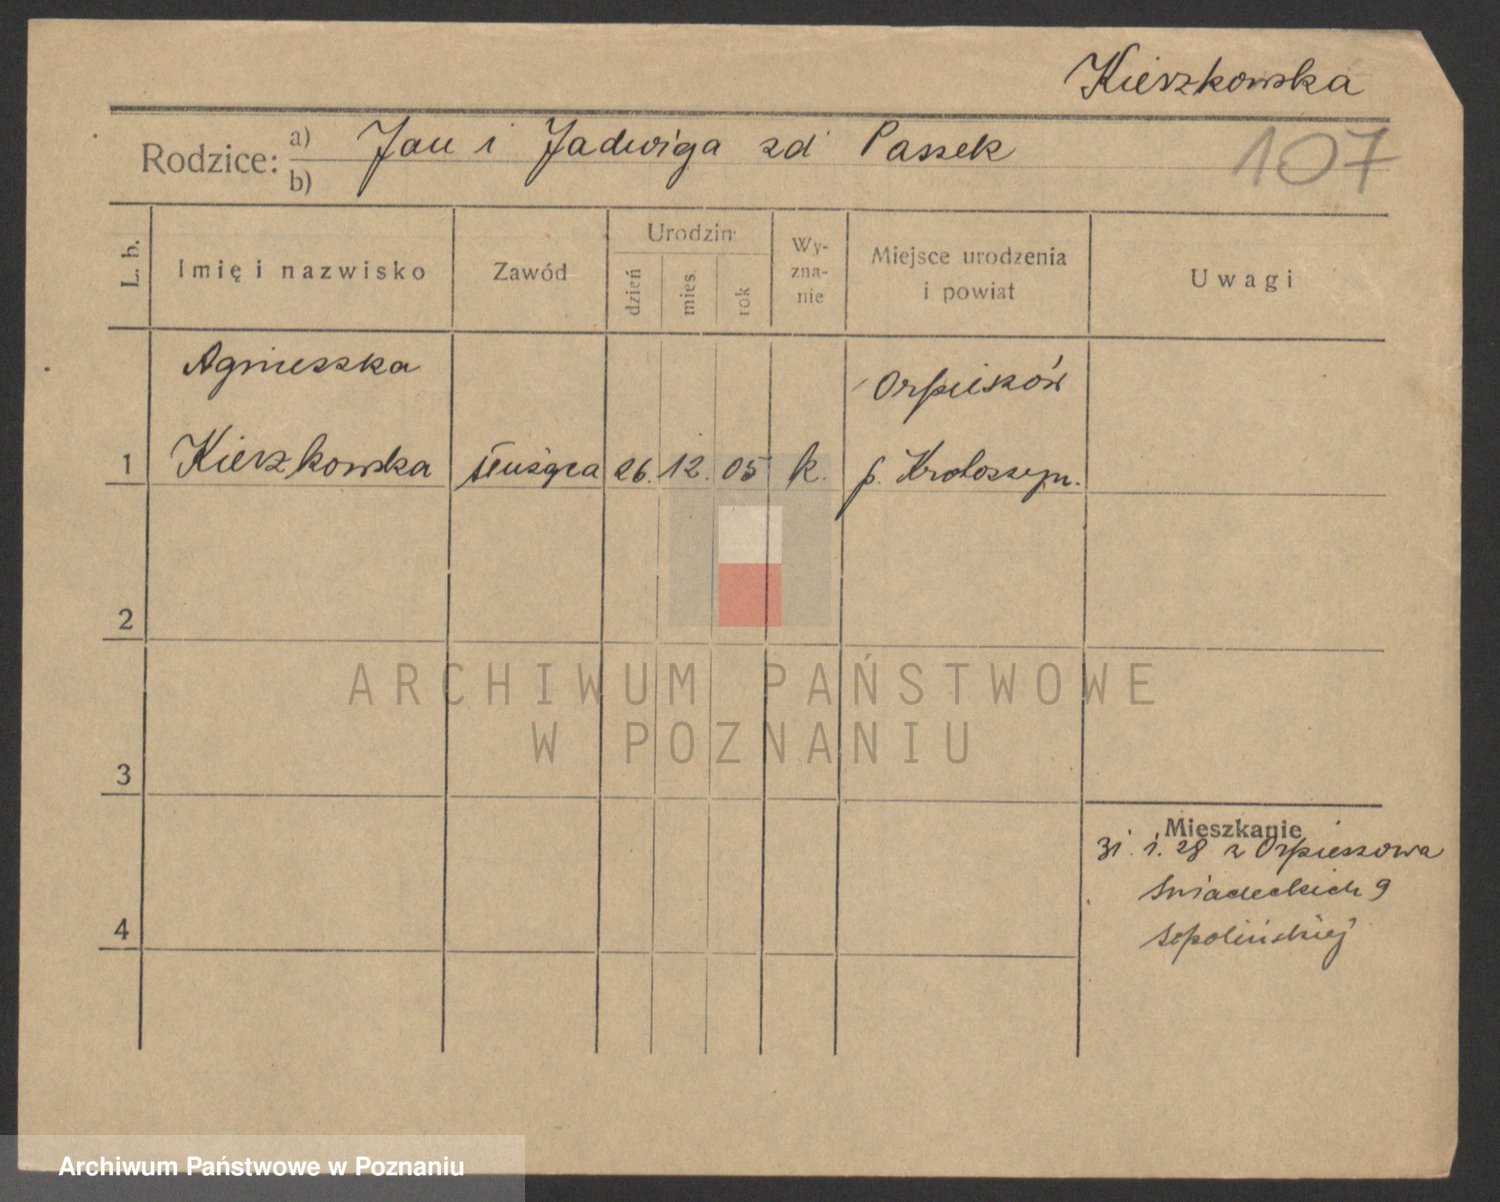 Kierzkowska
107
Rodzice: a) Jan i Jadwiga zd Passek
b)
L. b. Imię i nazwisko Zawód Urodzin: dzień mies. rok Wy-zna-nie Miejsce urodzenia i powiat Uwagi
Agnieszka
1 Kierzkowska służąca 26. 12. 05 k. p. Krotoszyn.
2
ARCHIWUM PAŃSTWOWE
W POZNANIU
3
Mieszkanie
31. 1. 28 z Orpiszewa
Śniadeckich 9
4
Archiwum Państwowe w Poznaniu